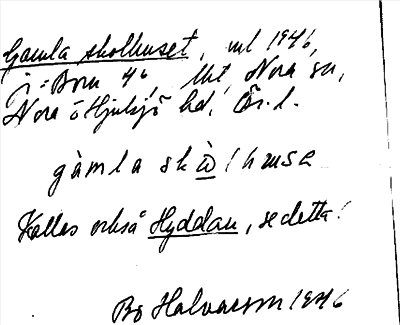 Gamla skolhuset, ml 1946,
Born 46, Nora sn,
Nora o Hjulsjö hd, Ör. l.
gàmla skà̲lhusə
Kallas också Hyddan, se detta!
Bo Halvarson 1946